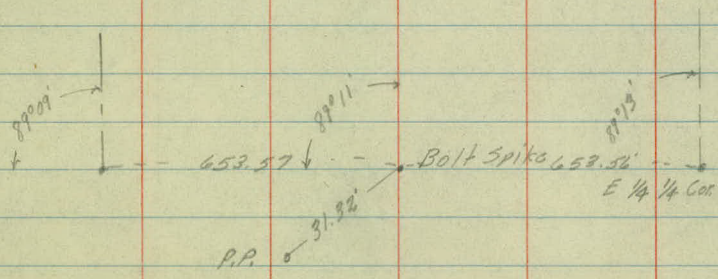 89°09'
89°11'
89°13'
653.57 Bolt Spike 653.56
E 1/4 1/4 Cor.
31.32'
P.P.